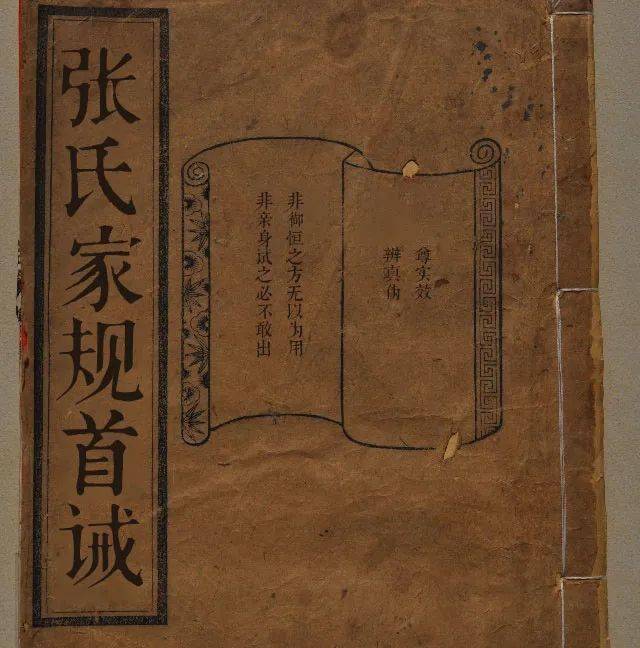 张氏家规首诫
尊实效
辨真伪
非御恒之方无以为用
非亲身试之必不敢出